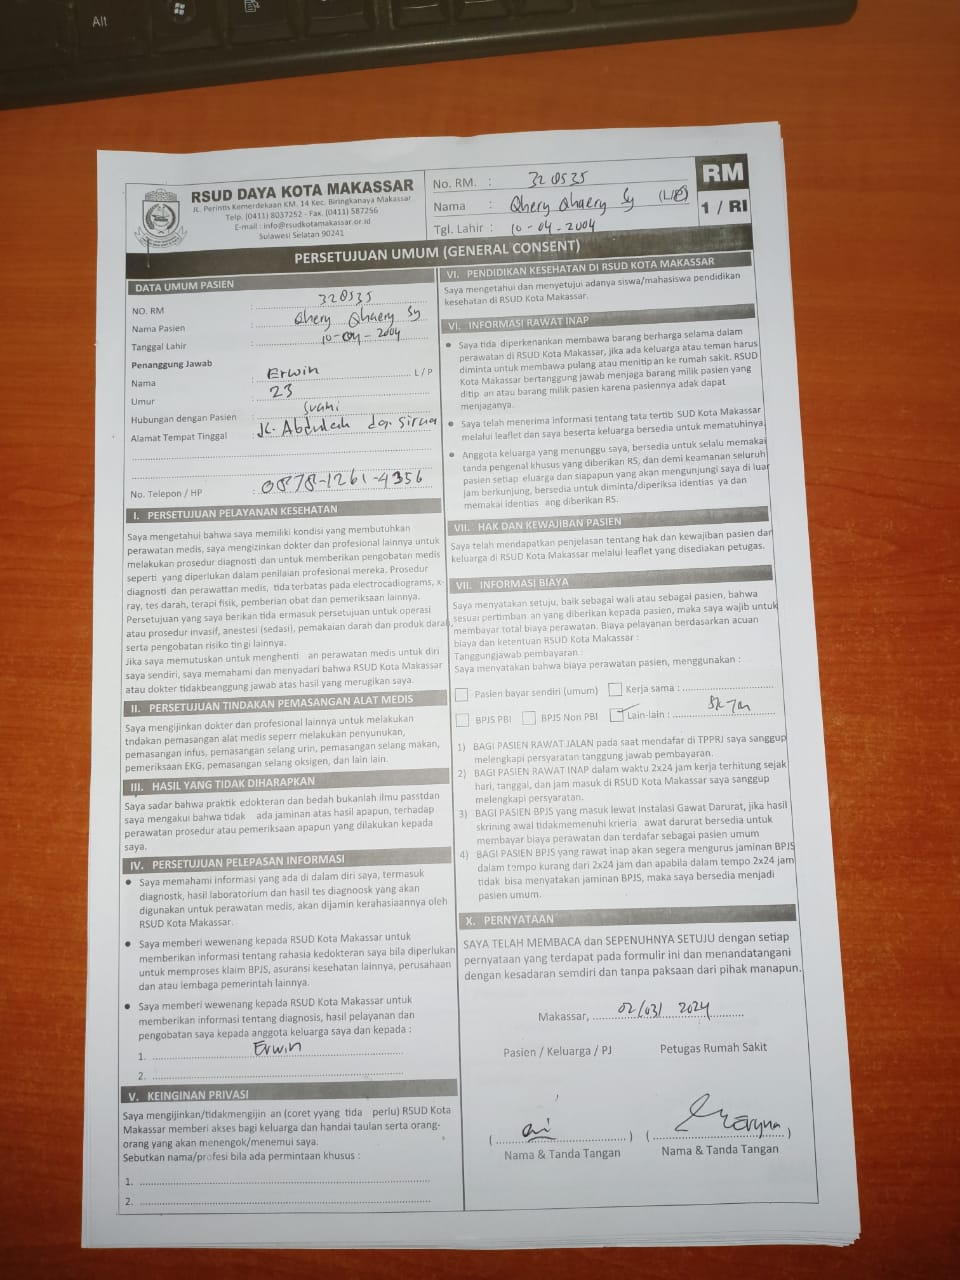 Alt
RSUD DAYA KOTA MAKASSAR
JL. Perintis Kemerdekaan KM. 14 Kec. Biringkanaya Makassar
Telp. (0411) 8037252 - Fax. (0411) 587256
E-mail : info@rsudkotamakassar.or.id
Sulawesi Selatan 90241
No. RM. : 320535
Nama : Qhery Qhaery Sy (L/P)
Tgl. Lahir : 10-04-2004
RM
1 / RI
PERSETUJUAN UMUM (GENERAL CONSENT)
DATA UMUM PASIEN
NO. RM : 320535
Nama Pasien : Qhery Qhaery Sy
Tanggal Lahir : 10-04-2004
Penanggung Jawab
Nama : Erwin L / P
Umur : 23
Hubungan dengan Pasien : Suami
Alamat Tempat Tinggal : JL. Abdullah dg. Sirua
No. Telepon / HP : 0878-1261-4356
I. PERSETUJUAN PELAYANAN KESEHATAN
Saya mengetahui bahwa saya memiliki kondisi yang membutuhkan
perawatan medis, saya mengizinkan dokter dan profesional lainnya untuk
melakukan prosedur diagnosti dan untuk memberikan pengobatan medis
seperti yang diperlukan dalam penilaian profesional mereka. Prosedur
diagnosti dan perawattan medis, tida terbatas pada electrocadiograms, x-
ray, tes darah, terapi fisik, pemberian obat dan pemeriksaan lainnya.
Persetujuan yang saya berikan tida ermasuk persetujuan untuk operasi
atau prosedur invasif, anestesi (sedasi), pemakaian darah dan produk darah,
serta pengobatan risiko tin gi lainnya.
Jika saya memutuskan untuk menghenti an perawatan medis untuk diri
saya sendiri, saya memahami dan menyadari bahwa RSUD Kota Makassar
atau dokter tidakbeanggung jawab atas hasil yang merugikan saya.
II. PERSETUJUAN TINDAKAN PEMASANGAN ALAT MEDIS
Saya mengijinkan dokter dan profesional lainnya untuk melakukan
tndakan pemasangan alat medis seperr melakukan penyunukan,
pemasangan infus, pemasangan selang urin, pemasangan selang makan,
pemeriksaan EKG, pemasangan selang oksigen, dan lain lain.
III. HASIL YANG TIDAK DIHARAPKAN
Saya sadar bahwa praktik edokteran dan bedah bukanlah ilmu passtdan
saya mengakui bahwa tidak ada jaminan atas hasil apapun, terhadap
perawatan prosedur atau pemeriksaan apapun yang dilakukan kepada
saya.
IV. PERSETUJUAN PELEPASAN INFORMASI
• Saya memahami informasi yang ada di dalam diri saya, termasuk
diagnostk, hasil laboratorium dan hasil tes diagnoosk yang akan
digunakan untuk perawatan medis, akan dijamin kerahasiaannya oleh
RSUD Kota Makassar.
• Saya memberi wewenang kepada RSUD Kota Makassar untuk
memberikan informasi tentang rahasia kedokteran saya bila diperlukan
untuk memproses klaim BPJS, asuransi kesehatan lainnya, perusahaan
dan atau lembaga pemerintah lainnya.
• Saya memberi wewenang kepada RSUD Kota Makassar untuk
memberikan informasi tentang diagnosis, hasil pelayanan dan
pengobatan saya kepada anggota keluarga saya dan kepada :
1. Erwin
2.
V. KEINGINAN PRIVASI
Saya mengijinkan/tidakmengijin an (coret yyang tida perlu) RSUD Kota
Makassar memberi akses bagi keluarga dan handai taulan serta orang-
orang yang akan menengok/menemui saya.
Sebutkan nama/profesi bila ada permintaan khusus :
1.
2.
VI. PENDIDIKAN KESEHATAN DI RSUD KOTA MAKASSAR
Saya mengetahui dan menyetujui adanya siswa/mahasiswa pendidikan
kesehatan di RSUD Kota Makassar.
VI. INFORMASI RAWAT INAP
• Saya tida diperkenankan membawa barang berharga selama dalam
perawatan di RSUD Kota Makassar, jika ada keluarga atau teman harus
diminta untuk membawa pulang atau menitip an ke rumah sakit. RSUD
Kota Makassar bertanggung jawab menjaga barang milik pasien yang
ditip an atau barang milik pasien karena pasiennya adak dapat
menjaganya.
• Saya telah menerima informasi tentang tata tertib SUD Kota Makassar
melalui leaflet dan saya beserta keluarga bersedia untuk mematuhinya.
• Anggota keluarga yang menunggu saya, bersedia untuk selalu memakai
tanda pengenal khusus yang diberikan RS, dan demi keamanan seluruh
pasien setiap eluarga dan siapapun yang akan mengunjungi saya di luar
jam berkunjung, bersedia untuk diminta/diperiksa identias ya dan
memakai identias ang diberikan RS.
VII. HAK DAN KEWAJIBAN PASIEN
Saya telah mendapatkan penjelasan tentang hak dan kewajiban pasien dan
keluarga di RSUD Kota Makassar melalui leaflet yang disediakan petugas.
VII. INFORMASI BIAYA
Saya menyatakan setuju, baik sebagai wali atau sebagai pasien, bahwa
sesuai pertimban an yang diberikan kepada pasien, maka saya wajib untuk
membayar total biaya perawatan. Biaya pelayanan berdasarkan acuan
biaya dan ketentuan RSUD Kota Makassar :
Tanggungjawab pembayaran :
Saya menyatakan bahwa biaya perawatan pasien, menggunakan :
Pasien bayar sendiri (umum) Kerja sama :
BPJS PBI BPJS Non PBI Lain-lain :
1) BAGI PASIEN RAWAT JALAN pada saat mendafar di TPPRJ saya sanggup
melengkapi persyaratan tanggung jawab pembayaran.
2) BAGI PASIEN RAWAT INAP dalam waktu 2x24 jam kerja terhitung sejak
hari, tanggal, dan jam masuk di RSUD Kota Makassar saya sanggup
melengkapi persyaratan.
3) BAGI PASIEN BPJS yang masuk lewat Instalasi Gawat Darurat, jika hasil
skrining awal tidakmemenuhi krieria awat darurat bersedia untuk
membayar biaya perawatan dan terdafar sebagai pasien umum
4) BAGI PASIEN BPJS yang rawat inap akan segera mengurus jaminan BPJS
dalam tempo kurang dari 2x24 jam dan apabila dalam tempo 2x24 jam
tidak bisa menyatakan jaminan BPJS, maka saya bersedia menjadi
pasien umum.
X. PERNYATAAN
SAYA TELAH MEMBACA dan SEPENUHNYA SETUJU dengan setiap
pernyataan yang terdapat pada formulir ini dan menandatangani
dengan kesadaran semdiri dan tanpa paksaan dari pihak manapun.
Makassar, 02/03/ 2024
Pasien / Keluarga / PJ Petugas Rumah Sakit
Nama & Tanda Tangan Nama & Tanda Tangan